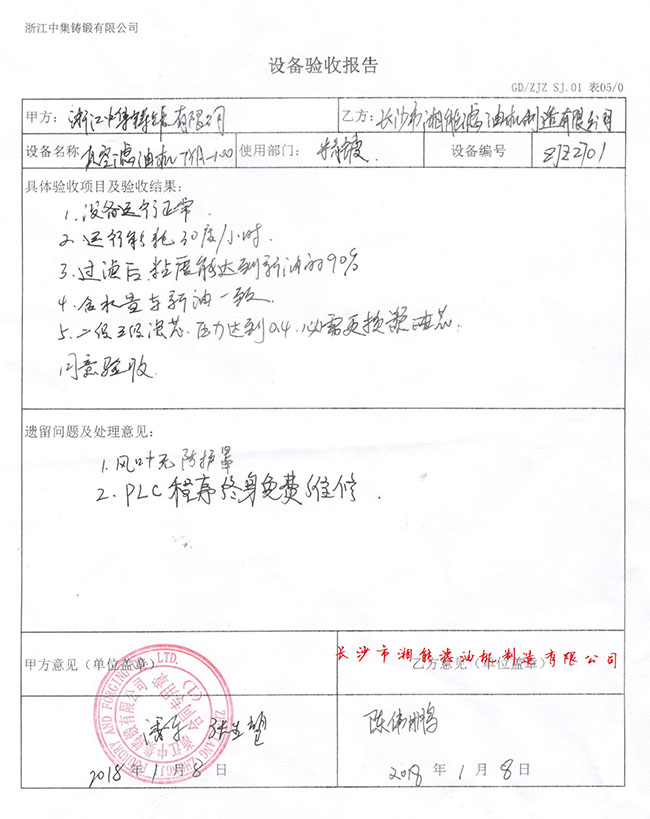 浙江中集铸锻有限公司
设备验收报告
GD/ZJZ SJ.01 表05/0
甲方：浙江中集铸锻有限公司
乙方：长沙市湘能滤油机制造有限公司
设备名称 真空滤油机TYA-100
使用部门：
设备编号 ZJZ201
具体验收项目及验收结果：
1.设备运行正常.
2.运行能耗30度/小时.
3.过滤后粘度能达到新油的90%
4.含水量与新油一致.
5.二级三级滤芯.压力达到0.4.必需更换滤油芯.
同意验收.
遗留问题及处理意见：
1.风叶无防护罩
2.PLC程序终身免费维修.
甲方意见（单位盖章）
乙方意见（单位盖章）
长沙市湘能滤油机制造有限公司
浙江中集铸锻有限公司
合同专用章
(1)
FOUNDRY AND FORGING CO., LTD.
陈伟鹏
2018年1月8日
2018年1月8日